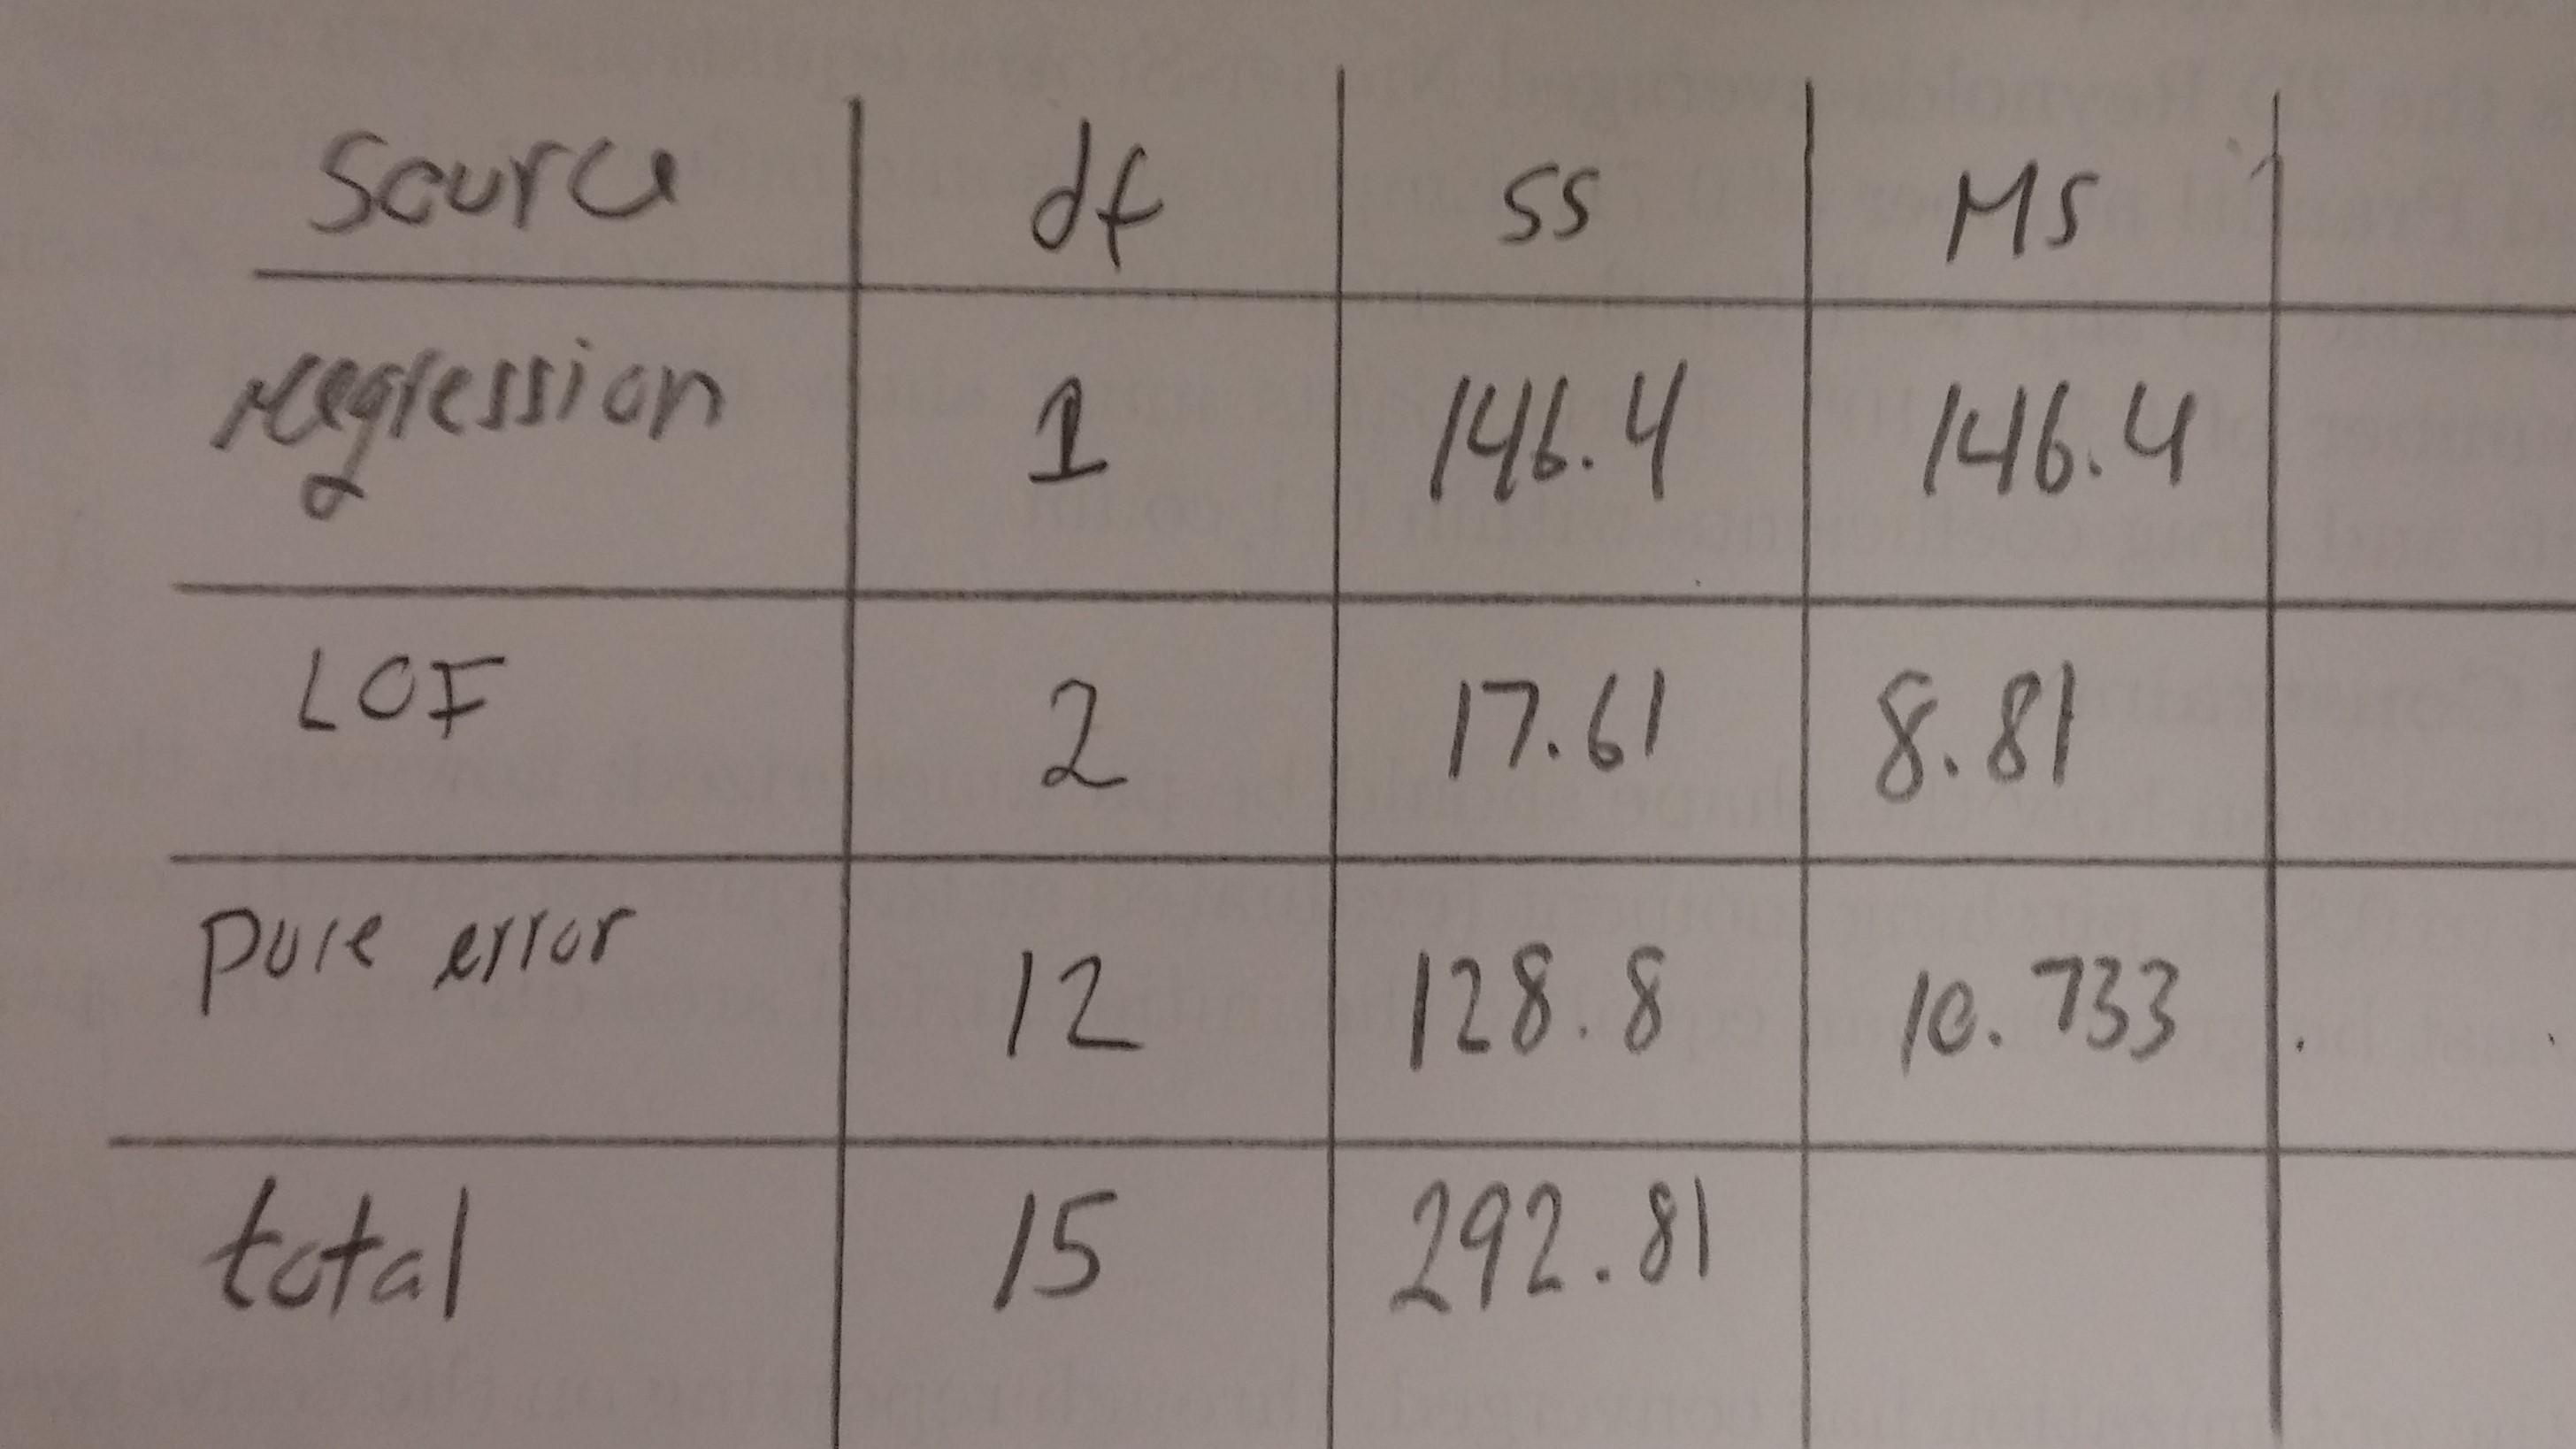 Source df SS MS
regression 1 146.4 146.4
LOF 2 17.61 8.81
pure error 12 128.8 10.733
total 15 292.81